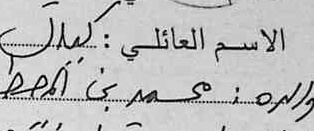 الاسم العائلي : كيلال
والده : محمد بن المصط